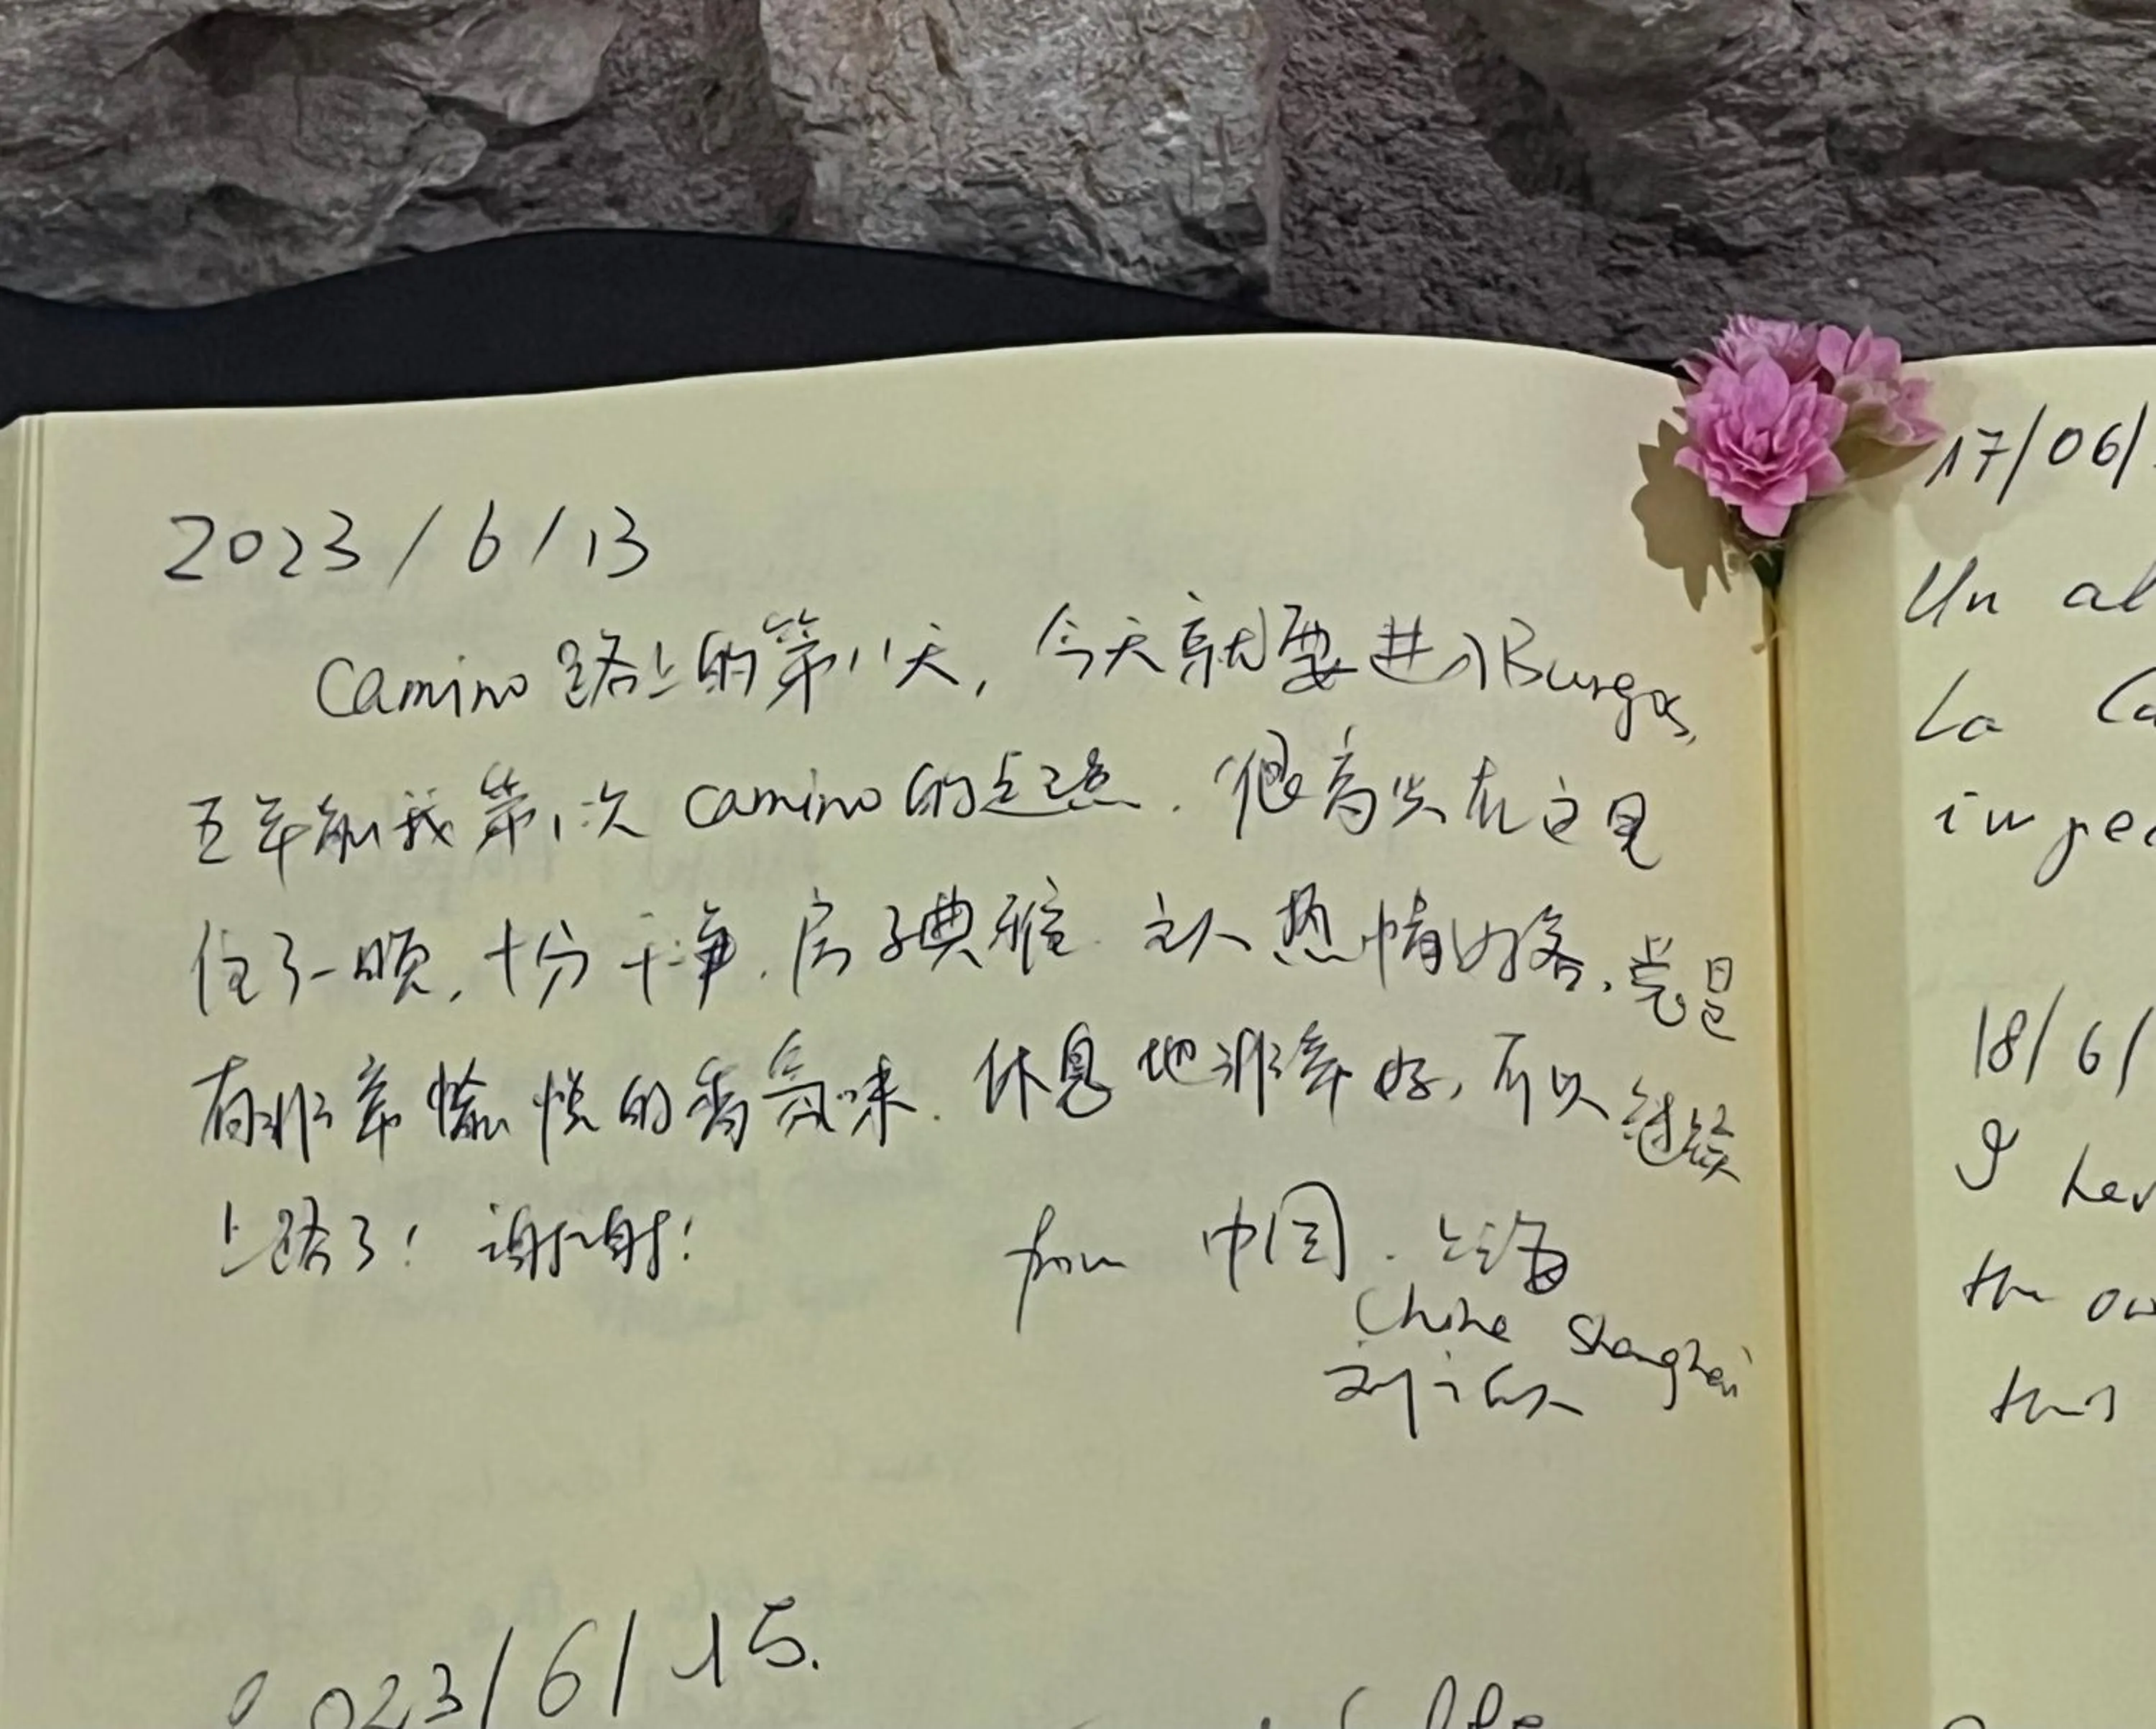 2023/6/13
Camino 路上的第11天，今天就要进入Burgos,
五年前我第1次 camino 的起点．很高兴在这里
住了一晚，十分干净．房子典雅．主人热情好客，总是
有非常愉悦的香氛味．休息地非常好，可以继续
上路了！谢谢！
from 中国．上海
China Shanghai
2023/6/15.
17/06/
Un al
La Ca
18/6/
I hav
the ow
this